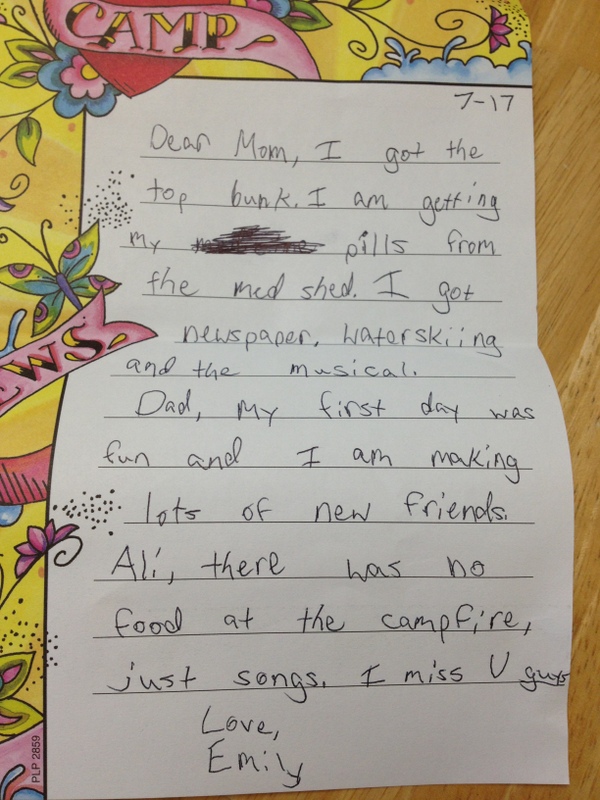 CAMP
7-17
Dear Mom, I got the
top bunk. I am getting
my pills from
the med shed. I got
newspaper, waterskiing
EWS
and the musical.
Dad, my first day was
fun and I am making
lots of new friends.
Ali, there was no
food at the campfire,
just songs. I miss U guys
Love,
Emily
PLP 2859